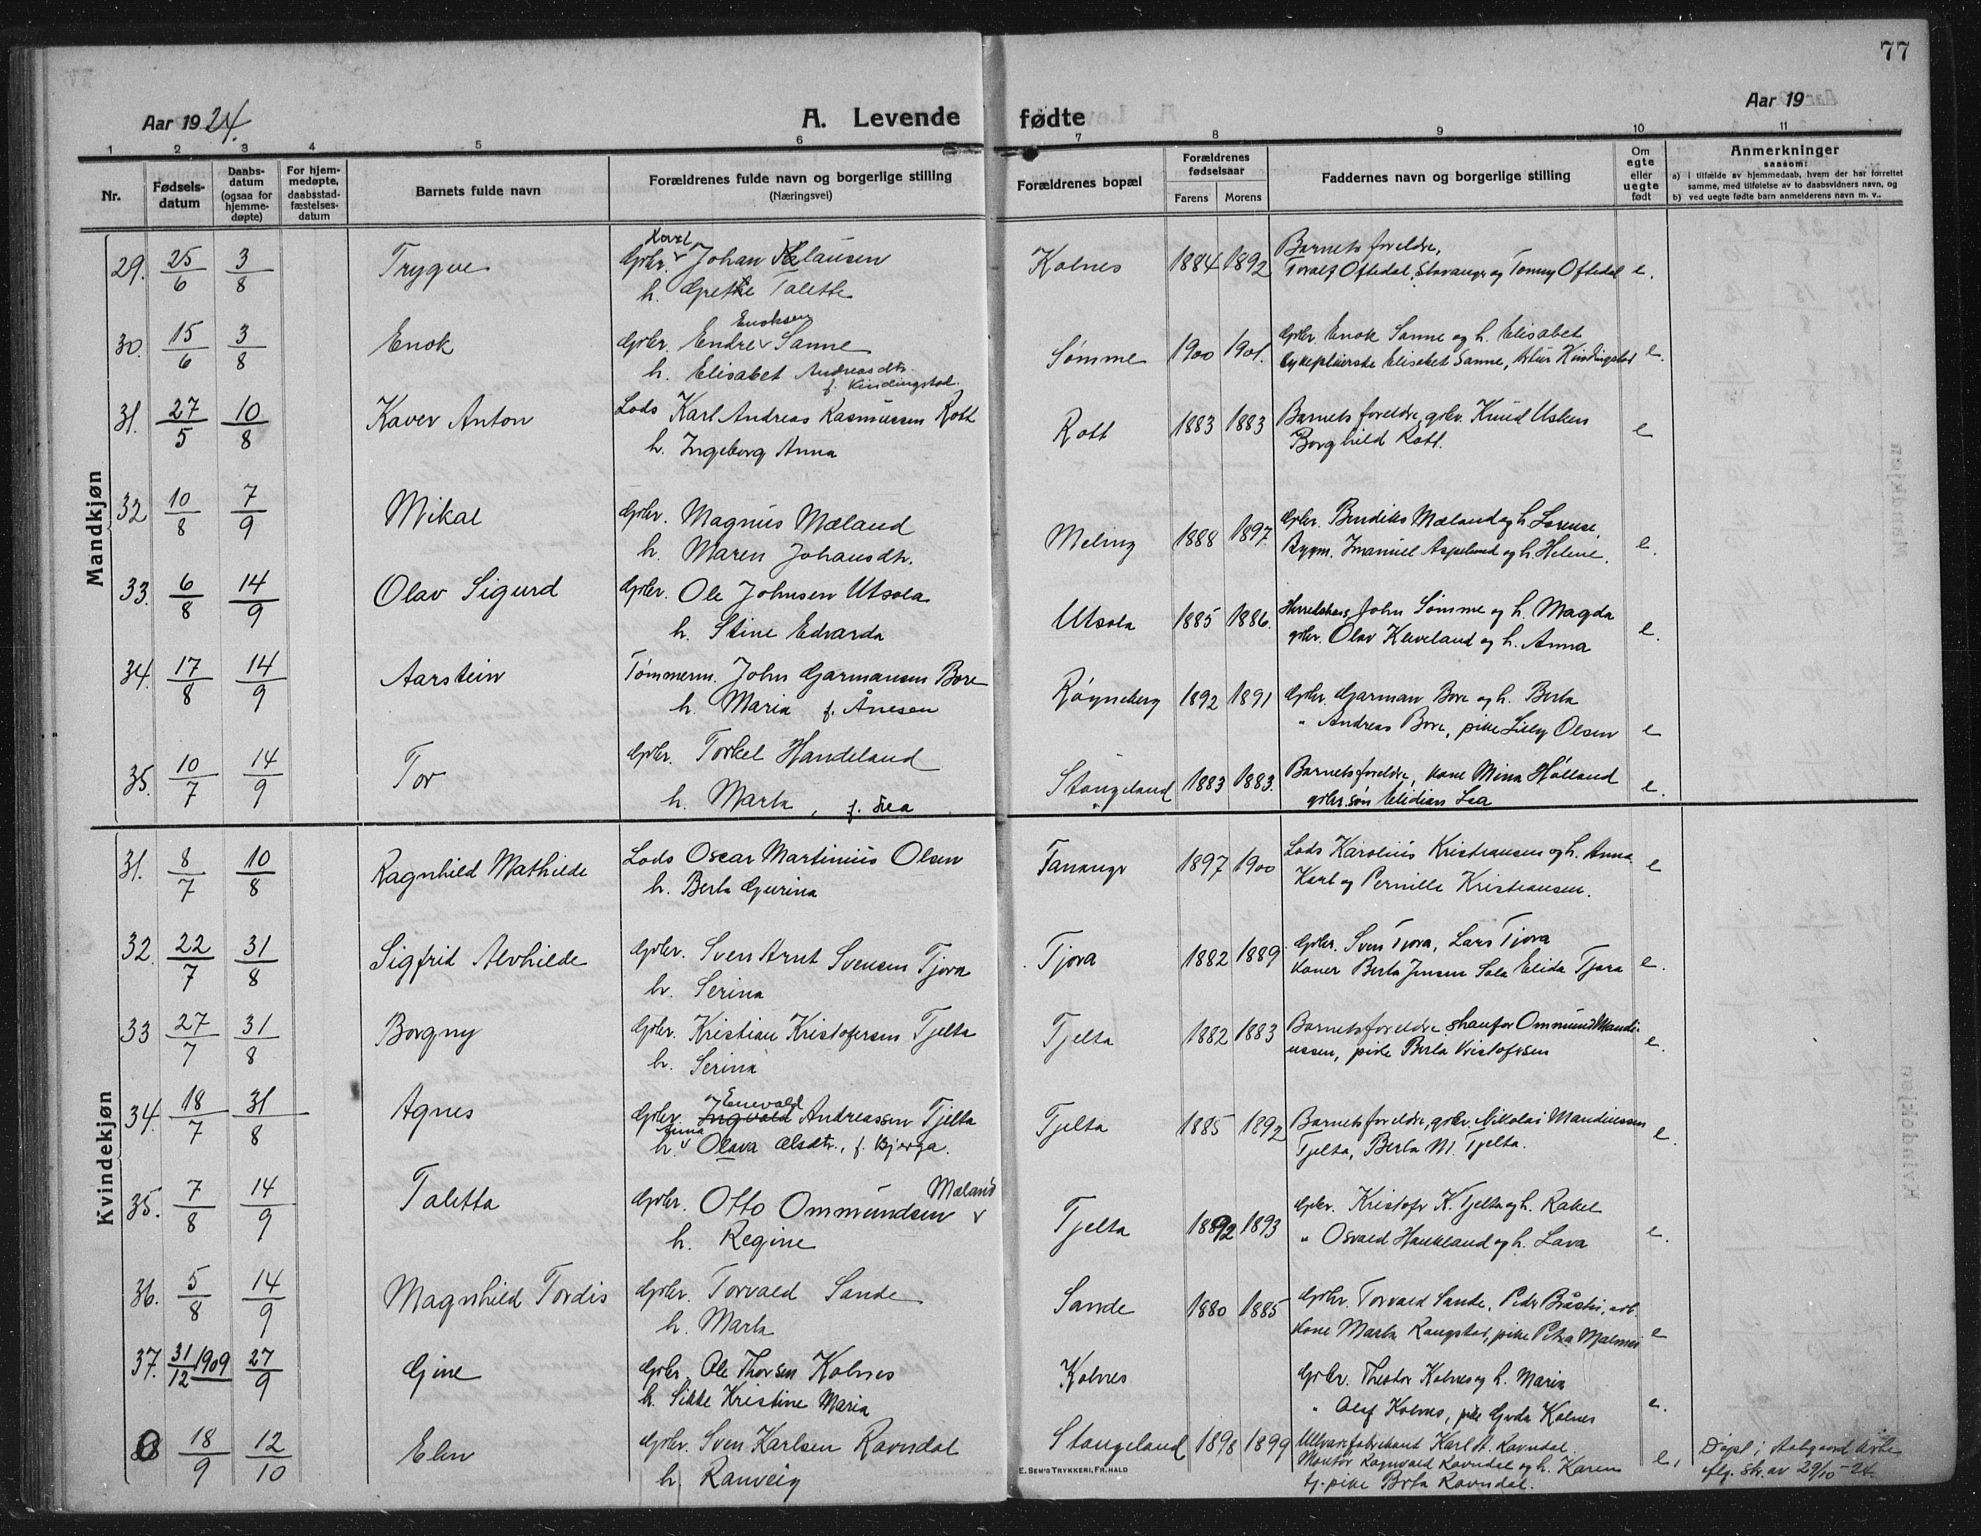 77
Aar 1924.
A. Levende fødte
Aar 19
1 2 3 4 5 6 7 8 9 10 11
Nr.
Fødsels-
datum
Daabs-
datum
(ogsaa for
hjemme-
døpte)
For hjem-
medøpte,
daabsstad-
fæstelses-
datum
Barnets fulde navn
Forældrenes fulde navn og borgerlige stilling
(Næringsvei)
Forældrenes bopæl
Forældrenes
fødselsaar
Farens Morens
Faddernes navn og borgerlig stilling
Om
egte
eller
uegte
født
Anmerkninger
saasom:
a) i tilfælde av hjemmedaab, hvem der har forrettet
samme, med tilføielse av to daabsvidners navn, og
b) ved uegte fødte barn anmelderens navn m. v..
Mandkjøn
29. 25/6 3/8 Trygve
Karl
Gbr. Johan Klausen
h. Grethe Talette
Kolnes 1884 1892
Barnets foreldre,
Toralf Oftedal, Stavanger og Tonny Oftedal e.
30. 15/6 3/8 Enok
Enoksen
Gbr. Endre Sanne
h. Elisabet Andreasdtr.
f. Kindingstad.
Sømme 1900 1901.
Gbr. Enok Sanne og h. Elisabet
sykepleierske Elisabet Sanne, Artur Kindingstad e.
31. 27/5 10/8 Kaver Anton
Lods Karl Andreas Rasmussen Rott
h. Ingeborg Anna
Rott 1883 1883
Barnets foreldre, gbr. Knud Usken
Borghild Rott. e
32 10/8 7/9 Mikal
Gbr. Magnus Mæland
h. Maren Johansdtr.
Meling 1888 1897.
Gbr. Bendiks Mæland og h. Lorense.
Bygm. Imanuel Aspelund og h. Helene. e.
33. 6/8 14/9 Olav Sigurd
Gbr. Ole Johnsen Utsola
h. Stine Edvarda
Utsola 1885 1886.
John Sømme og h. Magda
gbr. Olav Kleveland og h. Anna e.
34. 17/8 14/9 Aarstein
Tømmerm. John Garmansen Bore
h. Maria f. Ånesen
Røyneberg 1892 1891
Gbr. Garman Bore og h. Berta
" Andreas Bore, pike Lilly Olsen e
35. 10/7 14/9 Tor
Gbr. Torkel Handeland
h. Marta, f. Lea
Stangeland 1883 1883.
Barnets foreldre, kone Mina Hølland
gbr.søn Elidian Lea e.
Kvindekjøn
31. 8/7 10/8 Ragnhild Mathilde
Lods Oscar Martinius Olsen
h. Berta Gurina
Tananger 1897 1900
Lods Karolius Kristiansen og h. Anna
Karl og Pernille Kristiansen. e
32. 22/7 31/8 Sigfrid Alvhilde
Gbr. Sven Arnt Svensen Tjora
h. Serina
Tjora 1882 1889
Gbr. Sven Tjora, Lars Tjora
koner Berta Jensen Sola Elida Tjora e.
33 27/7 31/8 Borgny
Gbr. Kristian Kristofersen Tjelta
h. Serina
Tjelta 1882 1883
Barnets foreldre shaufør Ommund Mandi-
ussen, pike Berta Kristofersen e.
34. 18/7 31/8 Agnes
Enevald
Gbr. Ingvald Andreassen Tjelta
Anna
h. Olava Olsdtr., f. Bjorga.
Tjelta 1885 1892
Barnets foreldre, gbr. Nikolai Mandiussen
Tjelta, Berta M. Tjelta. e.
35. 7/8 14/9 Taletta
Mæland
Gbr. Otto Ommundsen
h. Regine
Tjelta 1892 1893
Gbr. Kristofer K. Tjelta og h. Rakel
" Osvald Haukland og h. Lava e.
36. 5/8 14/9 Magnhild Tordis
Gbr. Torvald Sande
h. Marta
Sande 1880 1885
Gbr. Torvald Sande, Peder Bråstei, arb.
kone Marta Rangstad, pike Petra Malmei e
37. 31/12 1909 27/9 Gine
Gbr. Ole Thorsen Kolnes
h. Sikke Kristine Maria
Kolnes
Gbr. Theodor Kolnes og h. Maria
" Olaf Kolnes, pike Gerda Kolnes e.
38 18/9 12/10 Elin
Gbr. Sven Karlsen Ravndal
h. Ranveig
Stangeland 1898 1899
Uldvarefabrikant Karl A. Ravndal.
Montør Ragnvald Ravndal og h. Karen
tj. pike Berta Ravndal. e,
Døpt i Aalgaard kirke
iflg. skr. av 29/10 - 24.
E. SEM'S TRYKKERI, FR.HALD